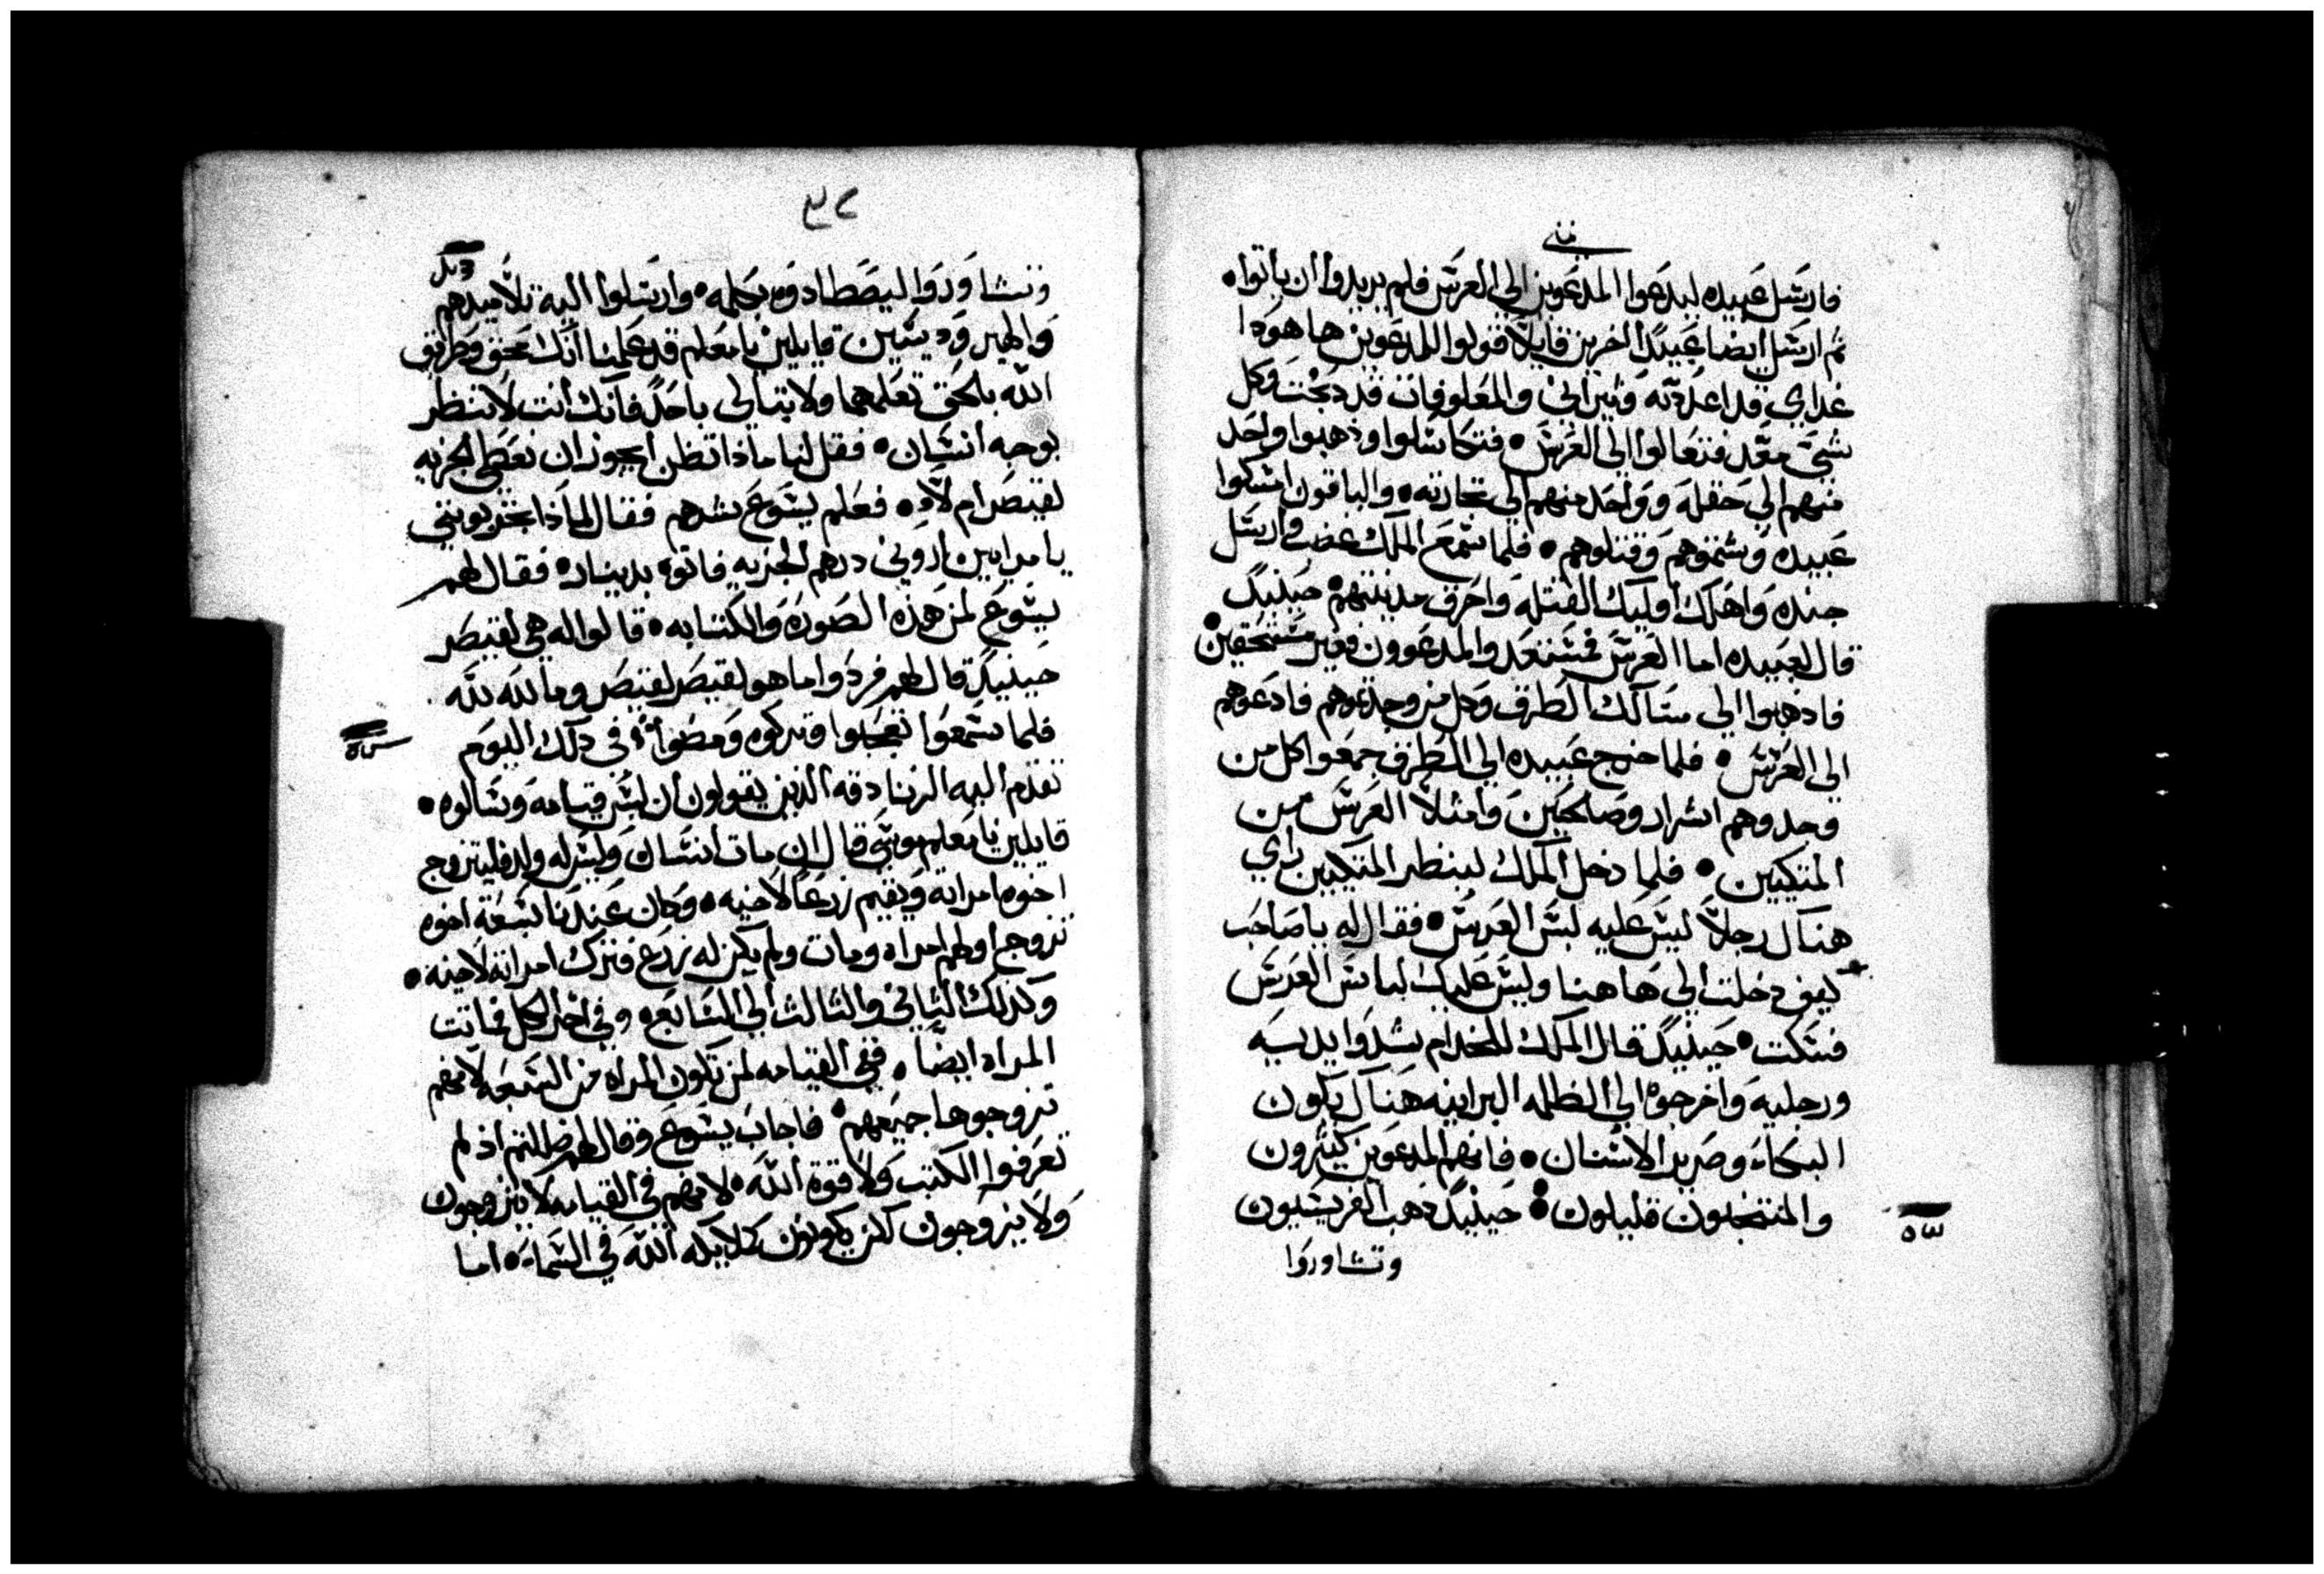 متى
فارسل عبيده ليدعوا المدعوين الي العرس فلم يريدوا ان ياتوا •
ثم ارسل ايضا عبيدًا اخرين قايلاً قولوا للمدعوين ها هودا
غداي قد اعددته وثيراني والمعلوفات قد دبحت وكل
شي معد فتعالوا الى العرس • فتكاسلوا وذهبوا واحد
منهم الي حقله وواحد منهم الي تجارته • والباقون امسكوا
عبيده وشتموهم وقتلوهم • فلما سمع الملك غضب وارسل
جنده واهلك اوليك القتله واحرق مدينتهم • حينيدً
قال لعبيده اما العرس فمستعد والمدعوون فغير مستحقين
فاذهبوا الى مسالك الطرق وكل من وجدتموهم فادعوهم
الى العرس • فلما خرج عبيده الي الطرق جمعوا كل من
وجدوهم اشرار وصالحين وامتلا العرس من
المتكيين • فلما دخل الملك لينظر المتكيين راي
هناك رجلاً ليس عليه لبس العرس • فقال له يا صاحب
كيف دخلت الي هاهنا وليس عليك لباس العرس
فسكت • حينيدً قال الملك للخدام شدوا يديه
ورجليه واخرجوه الي الظلمه البرانيه هناك يكون
البكاء وصرير الاسنان • فانهم المدعوين كثيرون
والمنتخبون قليلون • حينيدً ذهب الفريسيون
وتشاوروا
وتشاوروا ليصطادوه بكلمه • وارسلوا اليه تلاميدهم
والهيروديسيين قايلين يا معلم قد علمنا انك محق وطريق
الله بالحق تعلمها ولا تبالي باحد فانك انت لا تنظر
بوجه انسان • فقل لنا ماذا تظن ايجوز ان نعطي الجزيه
لقيصر ام لا • فعلم يسوع شرهم فقال لماذا تجربونني
يا مرايين اروني درهم الجزيه فاتوه بدينار • فقال لهم
يسوع لمن هذه الصوره والكتابه • قالوا له هي لقيصر
حينيدً قال لهم فردوا ما هو لقيصر لقيصر وما لله لله
فلما سمعوا تعجبوا وتركوه ومضوا • في ذلك اليوم
تقدم اليه الزنادقه الذين يقولون ان ليس قيامه وسالوه •
قايلين يا معلم موسى قال ان مات انسان وليس له ولد فليتزوج
اخوه امراته ويقيم زرعًا لاخيه • وكان عندنا سبعة اخوه
تزوج اولهم امراه ومات ولم يكن له زرع فترك امراته لاخيه •
وكذلك الثاني والثالث الي السابع • وفي اخر الكل ماتت
المراه ايضًا • ففي القيامه لمن تكون المراه من السبعه لانهم
تزوجوها جميعهم • فاجاب يسوع وقال لهم ضللتم اذ لم
تعرفوا الكتب ولا قوة الله • لانهم في القيامه لا يتزوجون
ولا يزوجون لكن يكونون كملايكه الله في السماء • اما